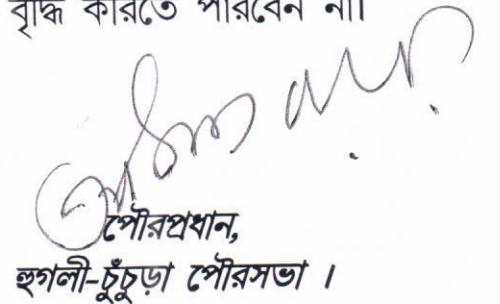 বৃদ্ধি করিতে পারিবেন না।
পৌরপ্রধান,
হুগলী-চুঁচুড়া পৌরসভা ।